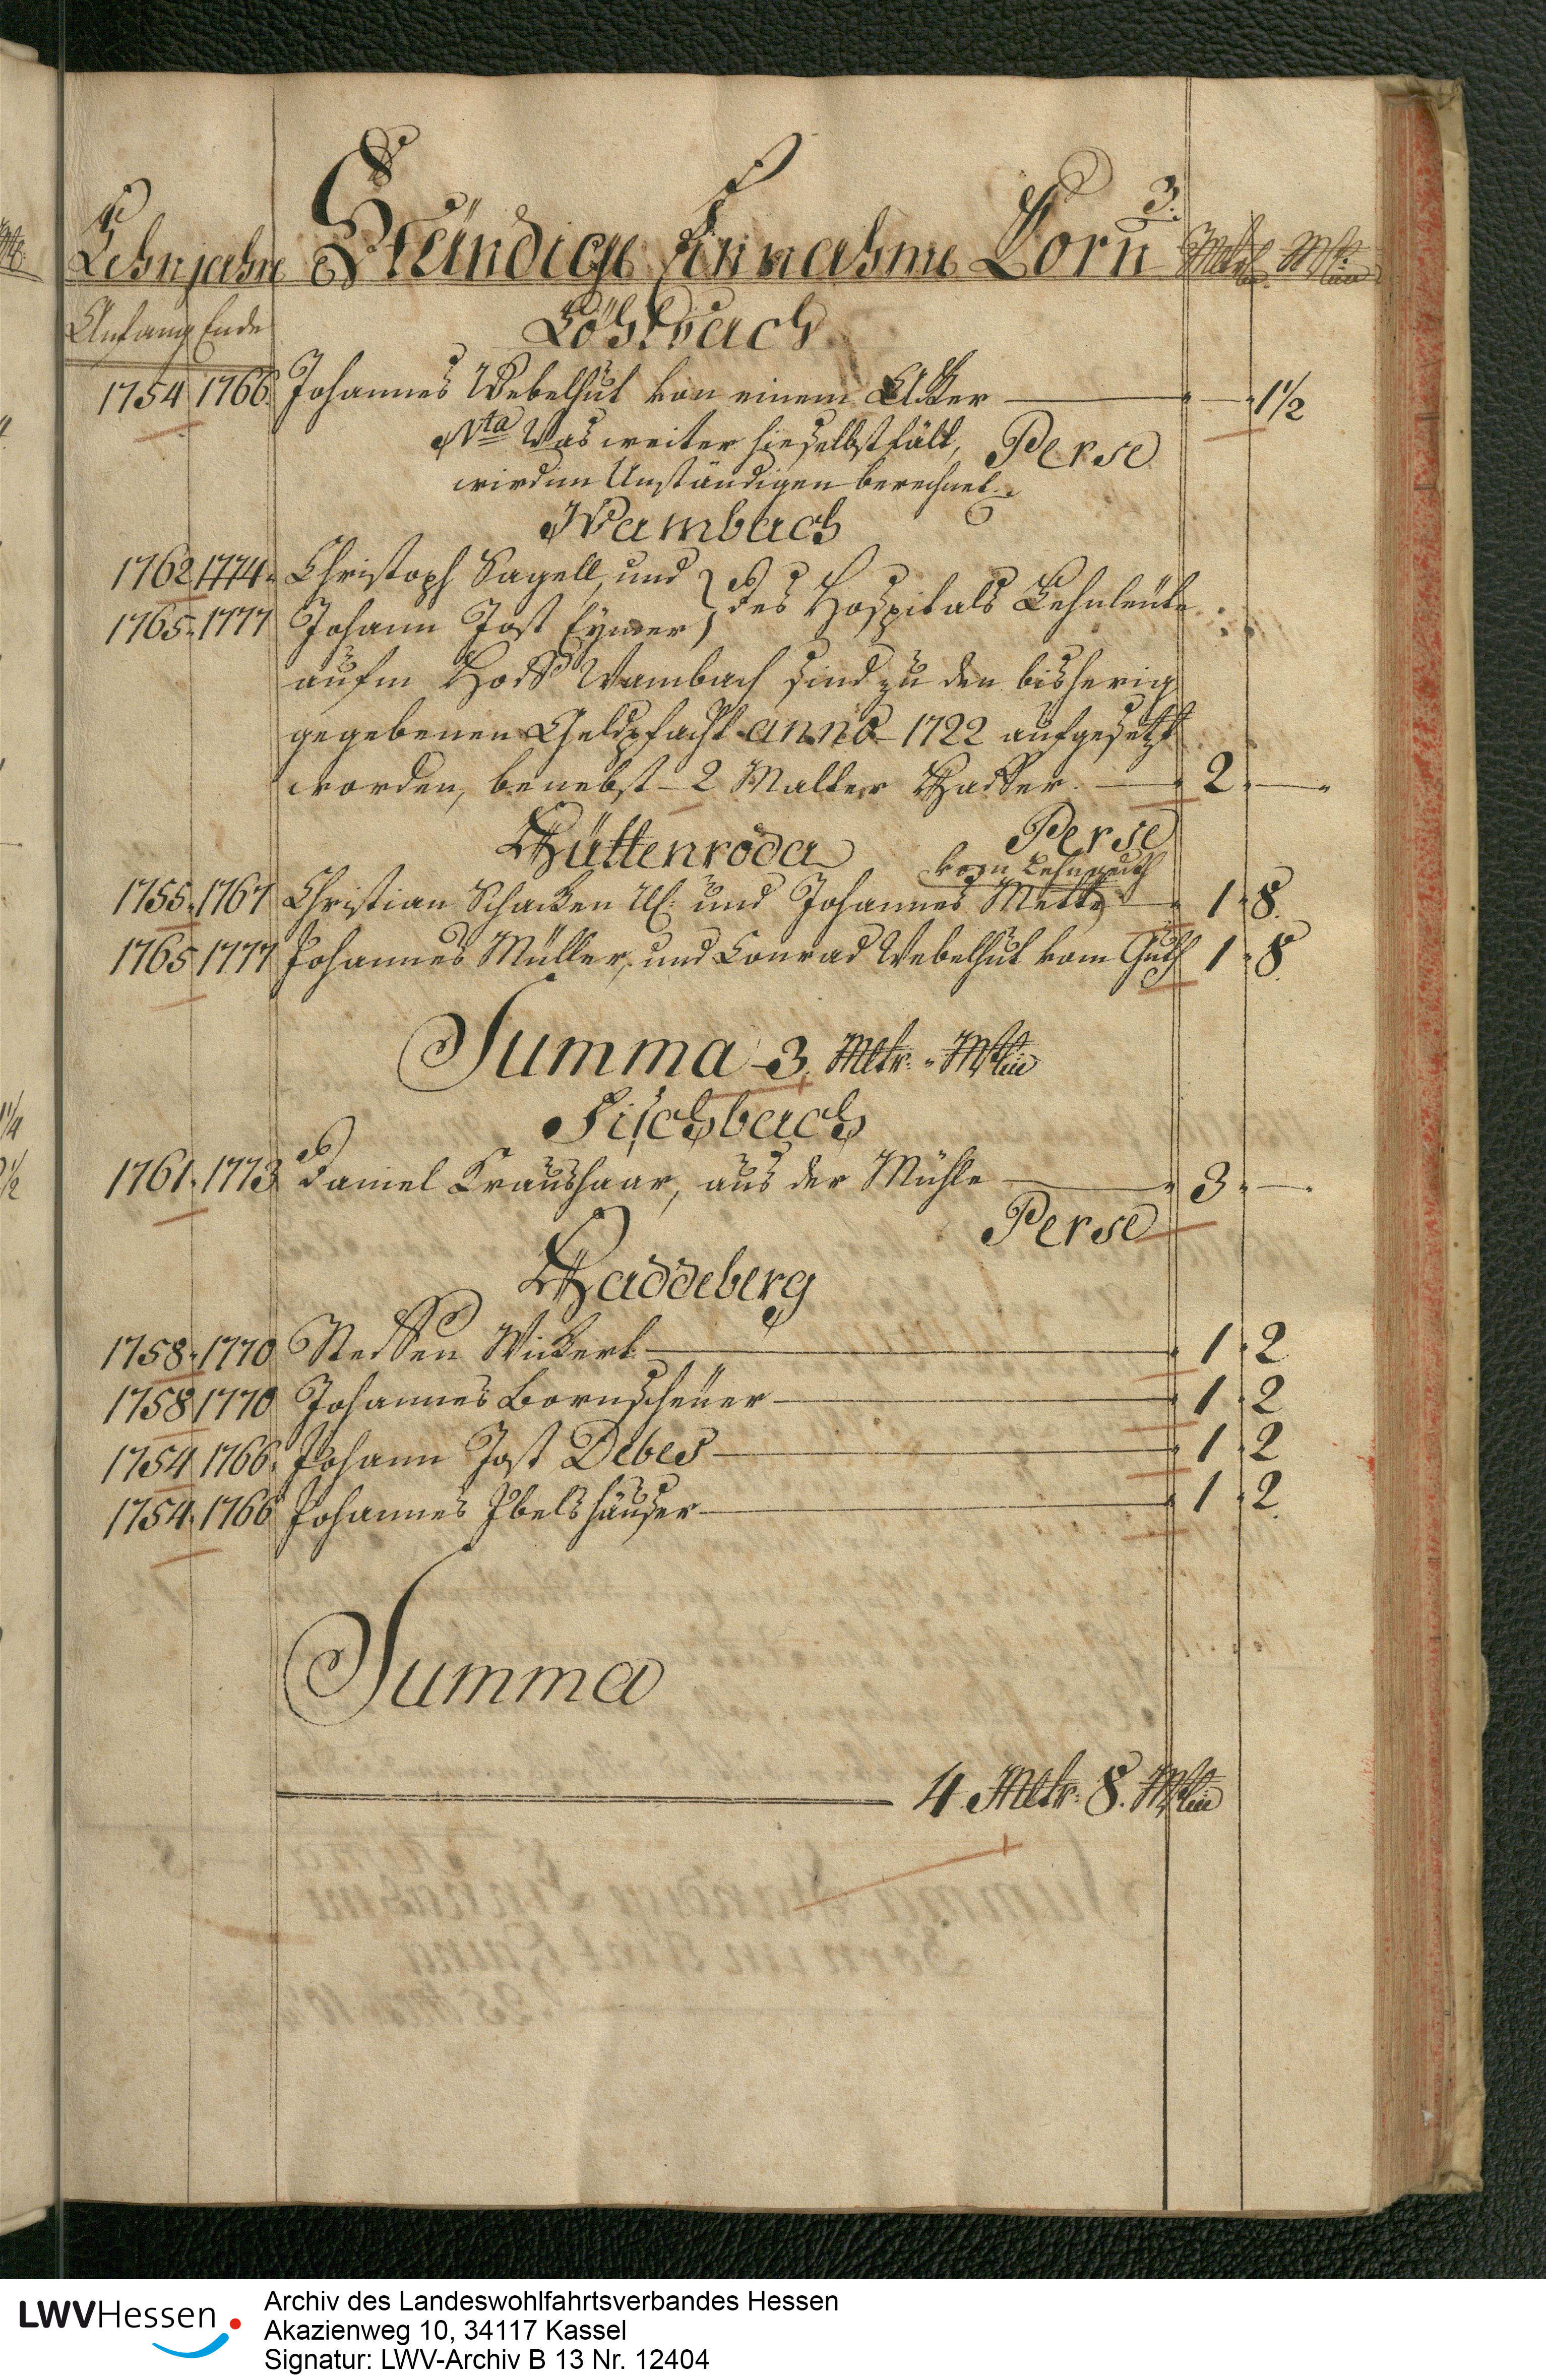 3.
Lehnjahre Ständige Einnahme Korn Mltr. Mst.
Anfang Ende
Löhlbach
1754 1766 Johannes Webelhut von einem Acker — 1 1/2
Nta Was weiter hieselbst fält, Perse
wird im Unständigen berechnet.
Wambach
1762. 1774. Christoph Sagell, und
1765. 1777 Johann Jost Eymer } des Hospitals Lehnleute
aufm Hoff Wambach sind zu den bisherig
gegebenen Geldpfacht anno 1722 aufgesetzt
worden, benebst 2 Malter Haffer. — 2. —
Hüttenroda Perse
vom Lehnguth
1755. 1767 Christian Schacken und Johannes Mette — 1. 8.
1765 1777 Johannes Müller, und Conrad Webelhut vom Guth 1. 8.
Summa 3. Mltr. „ Mst.
Fischbach
1761. 1773 Daniel Kraushaar, aus der Mühle — 3. —
Perse
Haddeberg
1758. 1770 Steffen Wickert — 1. 2
1758 1770 Johannes Bornscheuer — 1. 2
1754 1766. Johann Jost Debes — 1. 2
1754. 1766 Johannes Ibelshäuser — 1. 2.
Summa
4. Mltr. 8. Mst.
LWVHessen
Archiv des Landeswohlfahrtsverbandes Hessen
Akazienweg 10, 34117 Kassel
Signatur: LWV-Archiv B 13 Nr. 12404